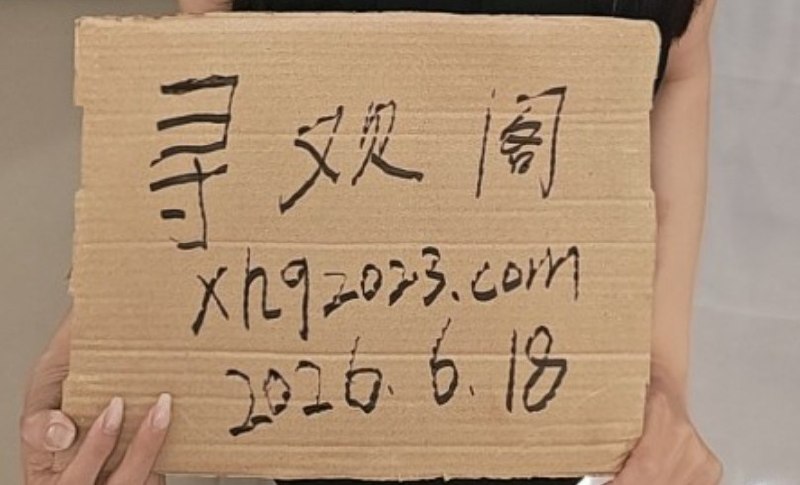 寻观阁
xhg2023.com
2026.6.18